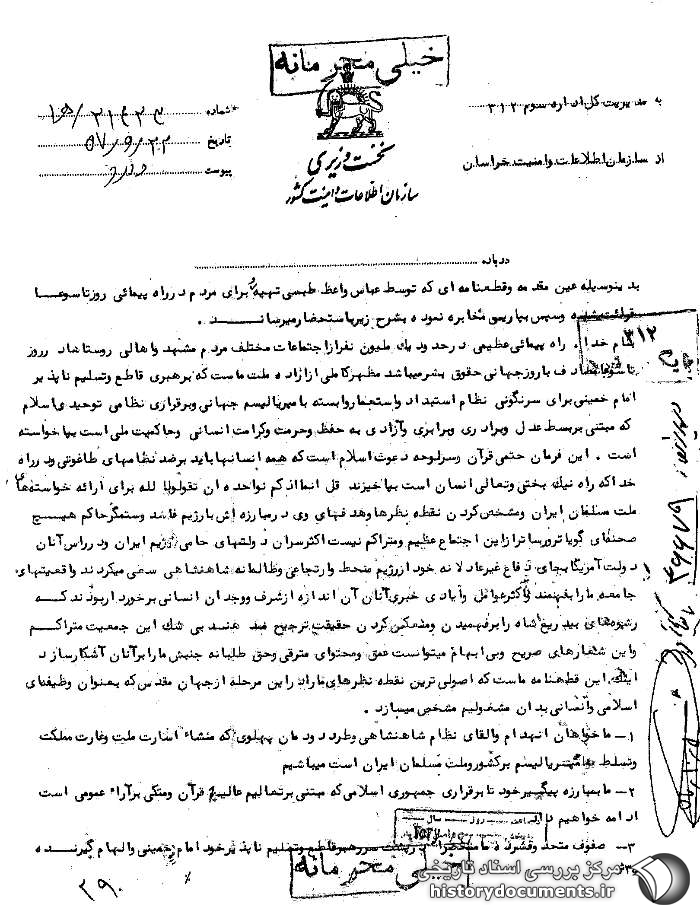 خیلی محرمانه
به مدیریت کل اداره سوم ۳۱۲
شماره
تاریخ ۵۷/۹/۲۲
پیوست ندارد
از سازمان اطلاعات و امنیت خراسان
نخست وزیری
سازمان اطلاعات و امنیت کشور
درباره
بدینوسیله عین مقدمه و قطعنامه ای که توسط عباس واعظ طبسی تهیه و برای مردم در راه پیمائی روز تاسوعا
قرائت و سپس بپاریس مخابره نموده بشرح زیر باستحضار میرساند .
۳۱۲
بنام خدا . راه پیمائی عظیمی در حدود یک ملیون نفر از اجتماعات مختلف مردم مشهد و اهالی روستاها در روز
تاسوعا مصادف با روز جهانی حقوق بشر میباشد مظهر کاملی از اراده ملت ماست که برهبری قاطع و تسلیم ناپذیر
امام خمینی برای سرنگونی نظام استبداد و استعمار وابسته با مپریالیسم جهانی و برقراری نظامی توحیدی اسلام
که مبتنی بر بسط عدل و برادری و برابری و آزادی به حفظ و حرمت و کرامت انسانی و حاکمیت ملی است بپا خواسته
است . این فرمان حتمی قرآن و سرلوحه دعوت اسلام است که همه انسانها باید بر ضد نظامهای طاغوتی و در راه
خدا که راه نیک بختی و تعالی انسان است بپا خیزند قل انما اعظکم بواحده ان تقوموا لله برای ارائه خواسته های
ملت مسلمان ایران و مشخص کردن نقطه نظرها و هدفهای وی در مبارزه اش با رژیم فاسد و ستمگر حاکم هیچ
صحنه ای گویاتر و رساتر از این اجتماع عظیم و متراکم نیست اکثر سران دولتهای حامی رژیم ایران و در راس آنان
دولت آمریکا بجای دفاع غیرعادلانه خود از رژیم منحط و ارتجاعی و ظالمانه شاهنشاهی سعی میکردند واقعیتهای
جامعه ما را بفهمند و اکثر عوامل و ایادی خبری آنان آن اندازه از شرف و وجدان انسانی برخوردار بودند که
رشوه های بیدریغ شاه را بر فهمیدن و منعکس کردن حقیقت ترجیح نمیدهند بی شک این جمعیت متراکم
و این شعارهای صریح و بی ابهام میتوانست عمق و محتوای مترقی و حق طلبانه جنبش ما را بر آنان آشکار سازد
اینک این قطعنامه ماست که اصولی ترین نقطه نظرهای ما را در این مرحله از جهان مقدس که بعنوان وظیفه ای
اسلامی و انسانی بدان مشغولیم مشخص میسازد .
۱ـ ما خواهان انهدام و الغای نظام شاهنشاهی و طرد دودمان پهلوی که منشاء اسارت ملت و غارت مملکت
و تسلط امپریالیسم بر کشور و ملت مسلمان ایران است میباشیم
۲ـ ما بمبارزه پیگیر خود تا برقراری جمهوری اسلامی که مبتنی بر تعالیم عالیه قرآن و متکی بر آراء عمومی است
ادامه خواهیم داد
۳ـ صفوف متحد و فشرده ما پشت سر رهبر قاطع و تسلیم ناپذیر خود امام خمینی و الهام گیرنده
خیلی محرمانه
۲۹۰
مرکز بررسی اسناد تاریخی
historydocuments.ir